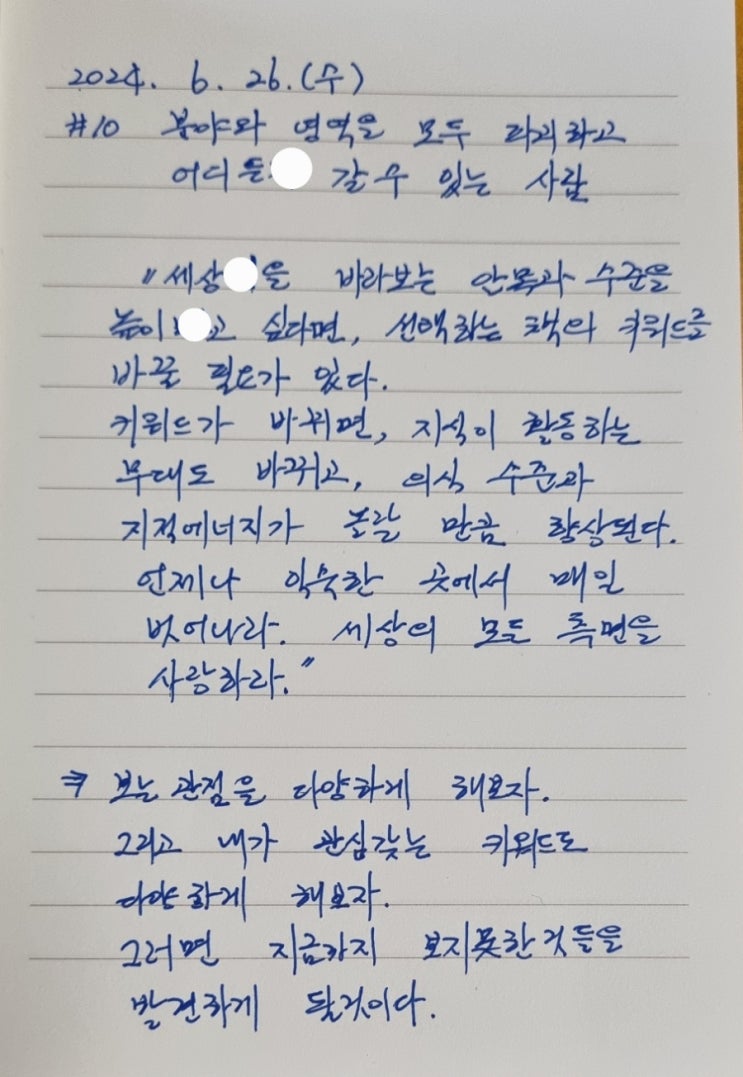 2024. 6. 26. (수)
#10 분야와 영역을 모두 파괴하고
어디든 갈 수 있는 사람
"세상 을 바라보는 안목과 수준을
높이 고 싶다면, 선택하는 책의 키워드를
바꿀 필요가 있다.
키워드가 바뀌면, 지식이 활동하는
무대도 바뀌고, 의식 수준과
지적에너지가 놀랄 만큼 향상된다.
언제나 익숙한 곳에서 매일
벗어나라. 세상의 모든 측면을
사랑하라."
→ 보는 관점을 다양하게 해보자.
그리고 내가 관심갖는 키워드도
다양하게 해보자.
그러면 지금까지 보지못한것들을
발견하게 될것이다.